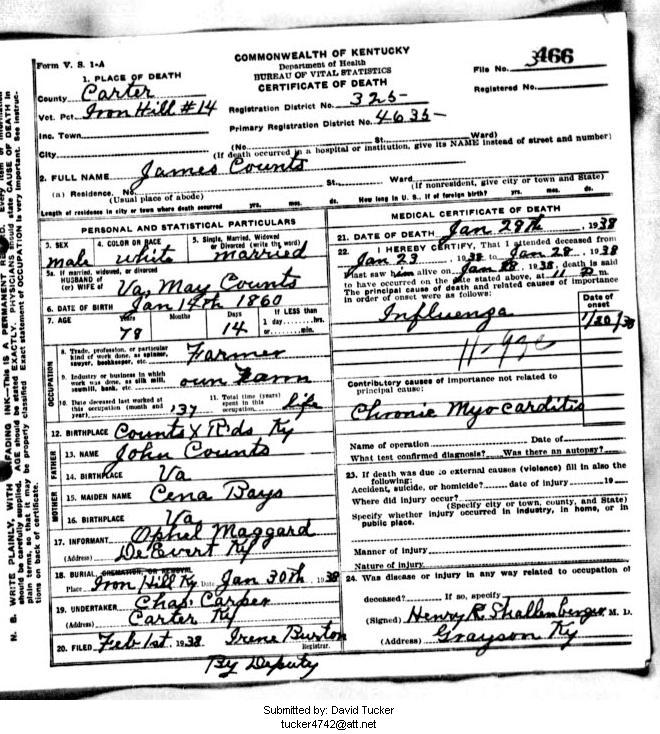 Form V. S. 1-A
COMMONWEALTH OF KENTUCKY
Department of Health
BUREAU OF VITAL STATISTICS
CERTIFICATE OF DEATH
File No. 3466
Registered No.
1. PLACE OF DEATH
County Carter
Vot. Pct. Iron Hill #14
Inc. Town
City
Registration District No. 325-
Primary Registration District No. 4635-
(No. St. Ward)
(If death occurred in a hospital or institution, give its NAME instead of street and number)
2. FULL NAME James Counts
(a) Residence. No. St., Ward
(Usual place of abode) (If nonresident, give city or town and State)
Length of residence in city or town where death occurred yrs. mos. ds. How long in U. S. if of foreign birth? yrs. mos. ds.
PERSONAL AND STATISTICAL PARTICULARS
3. SEX 4. COLOR OR RACE 5. Single, Married, Widowed or Divorced (write the word)
male white married
5a. If married, widowed, or divorced
HUSBAND of
(or) WIFE of Va. May Counts
6. DATE OF BIRTH Jan 14th 1860
7. AGE Years Months Days If LESS than
78 14 1 day hrs.
or min.
OCCUPATION
8. Trade, profession, or particular kind of work done, as spinner, sawyer, bookkeeper, etc. Farmer
9. Industry or business in which work was done, as silk mill, sawmill, bank, etc. own Farm
10. Date deceased last worked at this occupation (month and year) '37
11. Total time (years) spent in this occupation life
12. BIRTHPLACE Counts X Rds Ky
FATHER
13. NAME John Counts
14. BIRTHPLACE Va
MOTHER
15. MAIDEN NAME Cena Bays
16. BIRTHPLACE Va
17. INFORMANT Ophel Maggard
(Address) DeEvert Ky
18. BURIAL, CREMATION OR REMOVAL
Place Iron Hill Ky Date Jan 30th, 1938
19. UNDERTAKER Chap. Carper
(Address) Carter Ky
20. FILED Feb 1st, 1938 Irene Burton
Registrar.
By Deputy
MEDICAL CERTIFICATE OF DEATH
21. DATE OF DEATH Jan 28th, 1938
22. I HEREBY CERTIFY, That I attended deceased from
Jan 23, 1938 to Jan 28, 1938
I last saw him alive on Jan 28, 1938, death is said
to have occurred on the date stated above, at 11 P m.
The principal cause of death and related causes of importance
in order of onset were as follows:
Date of onset
Influenza 1/20/38
Contributory causes of importance not related to
principal cause:
Chronic Myocarditis
Name of operation Date of
What test confirmed diagnosis? Was there an autopsy?
23. If death was due to external causes (violence) fill in also the
following:
Accident, suicide, or homicide? date of injury 19
Where did injury occur?
(Specify city or town, county, and State)
Specify whether injury occurred in industry, in home, or in
public place.
Manner of injury
Nature of injury
24. Was disease or injury in any way related to occupation of
deceased? If so, specify
(Signed) Henry R Shallenberger M. D.
(Address) Grayson Ky
N. B. WRITE PLAINLY, WITH FADING INK—THIS IS A PERMANENT RECORD. Every item of information
should be carefully supplied. AGE should be stated EXACTLY. PHYSICIANS should state CAUSE OF DEATH in
plain terms, so that it may be properly classified. Exact statement of OCCUPATION is very important. See instruc-
tions on back of certificate.
Submitted by: David Tucker
tucker4742@att.net